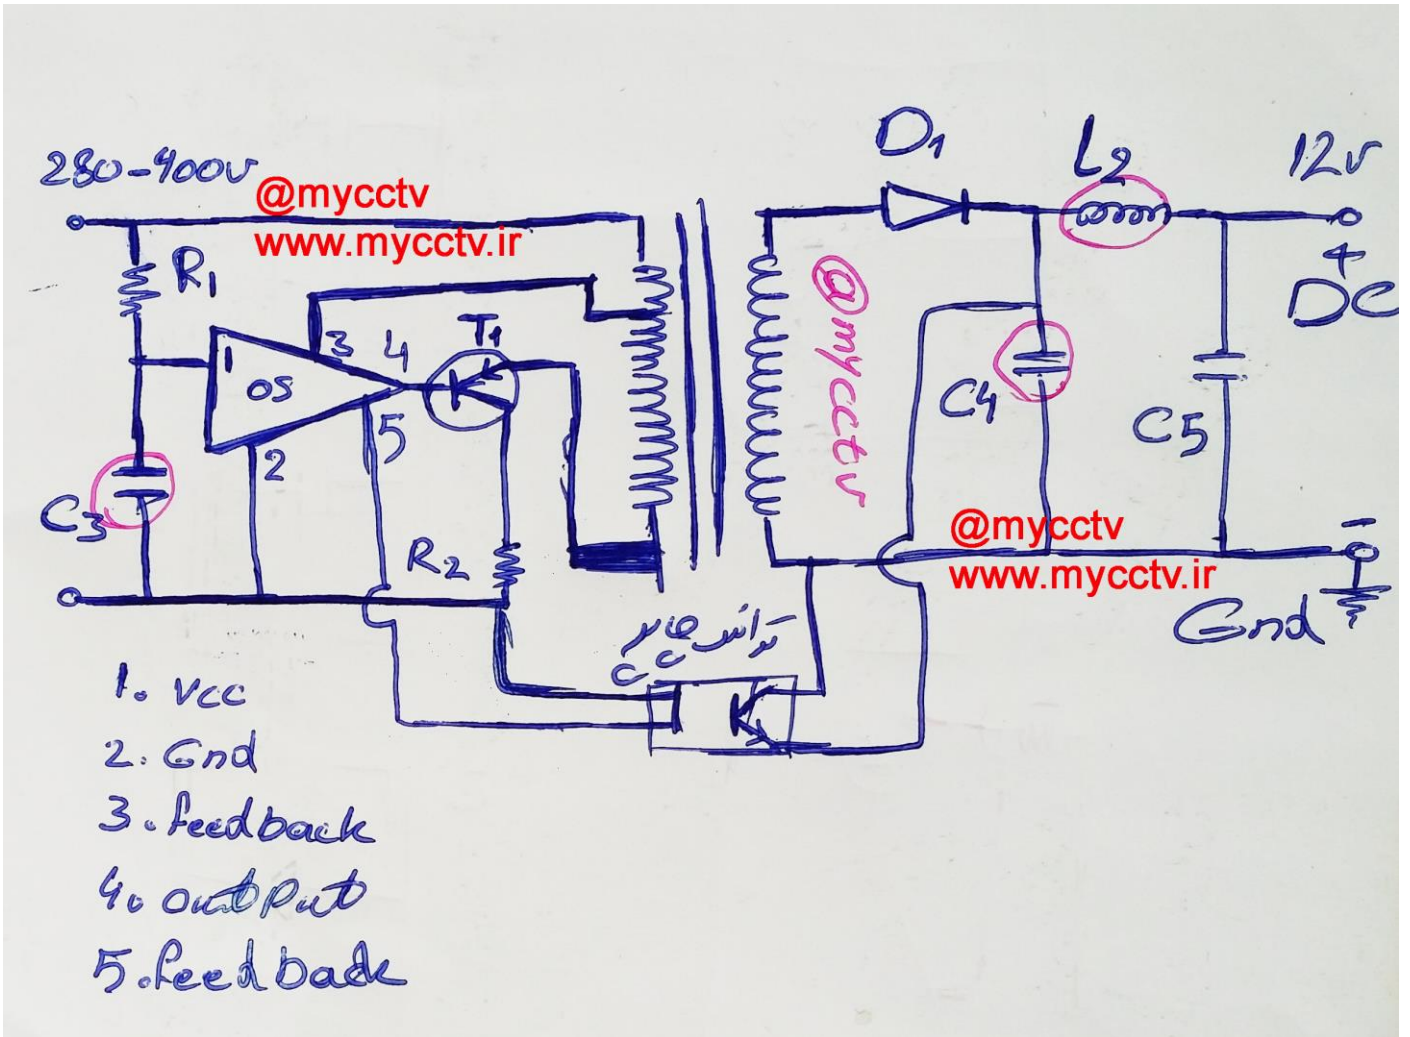 280-400v
@mycctv
www.mycctv.ir
R1
3
4
T1
1
OS
5
2
C3
R2
D1
L2
12v
+
DC
@mycctv
C4
C5
@mycctv
www.mycctv.ir
-
Gnd
ترانس چاپر
1. Vcc
2. Gnd
3. feedback
4. output
5. feedback